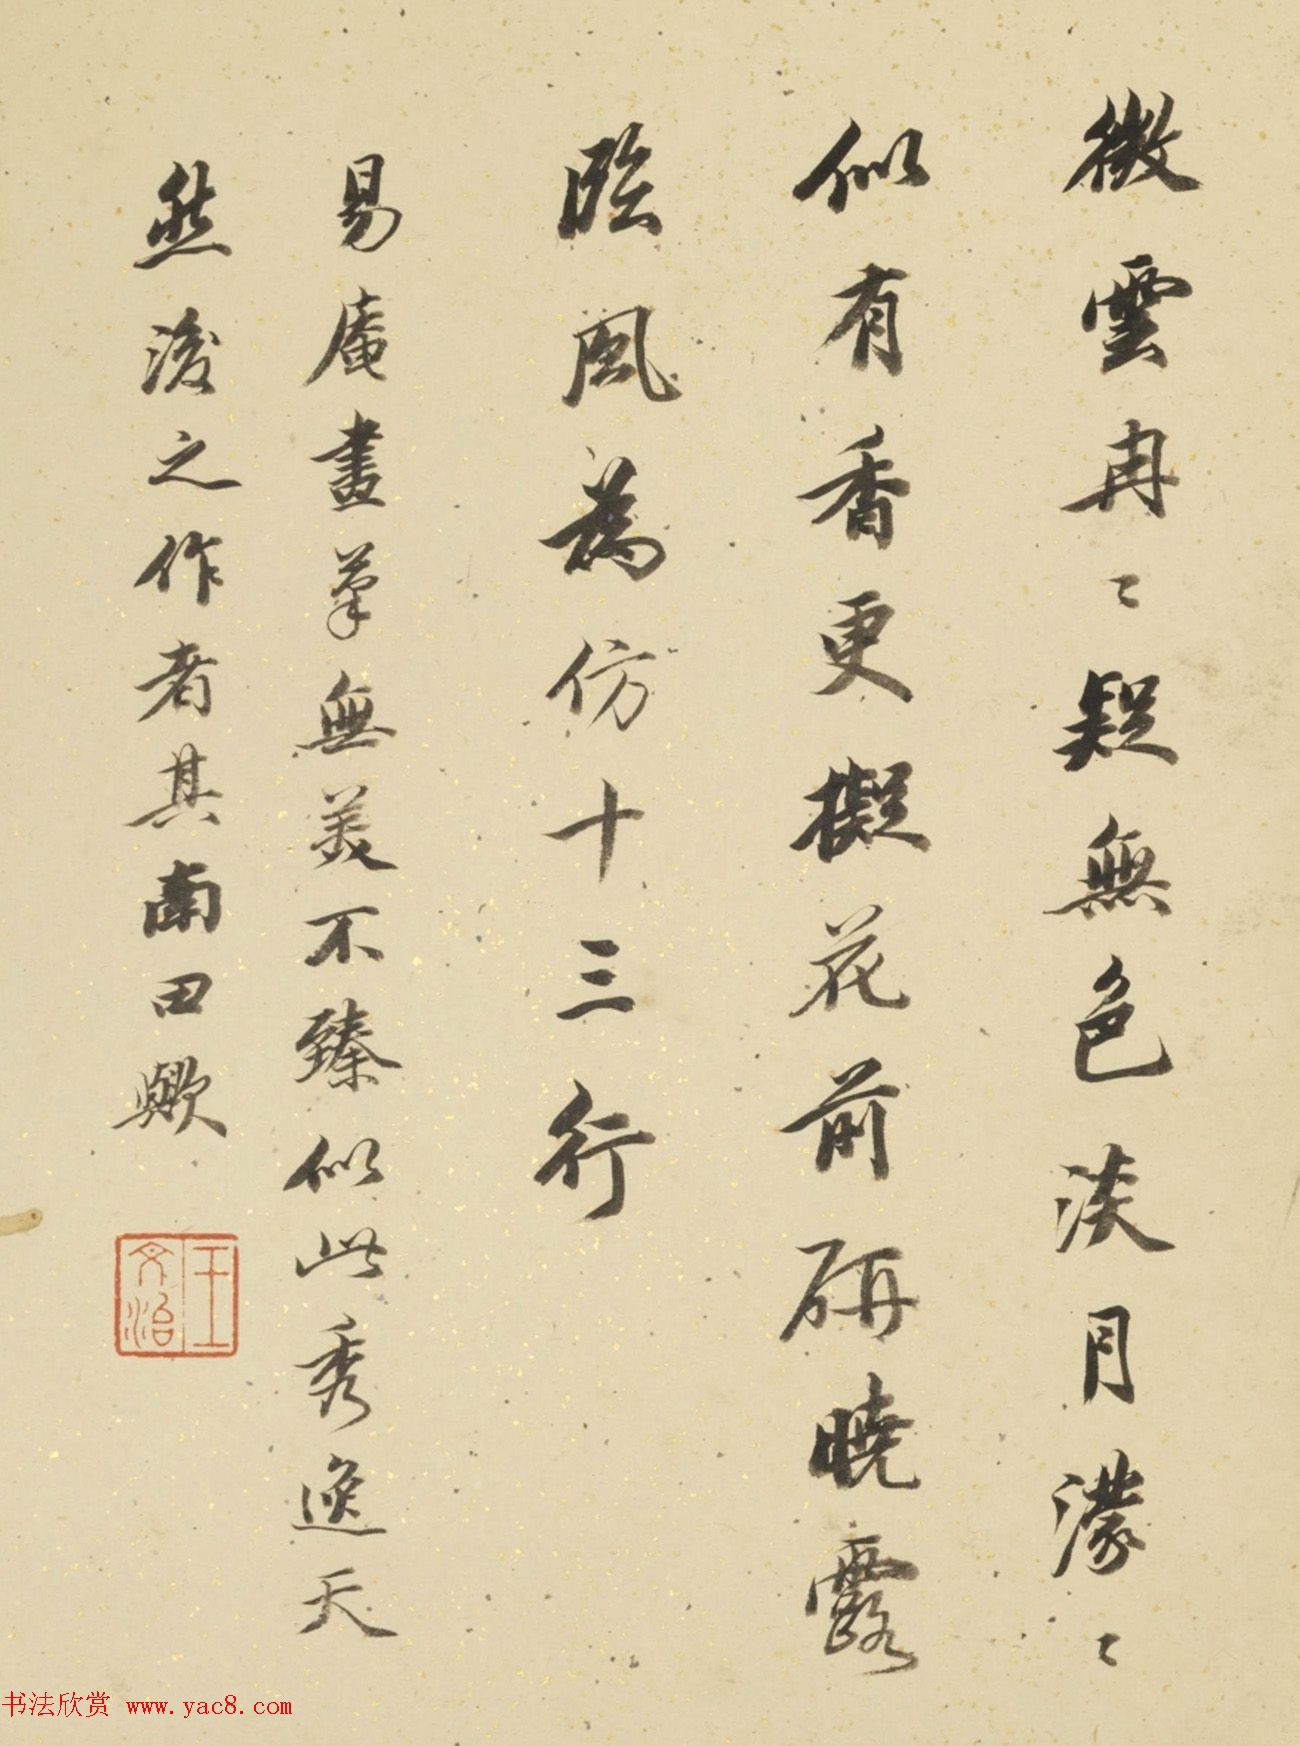 微雲冉〻疑無色淡月濛〻
似有香更擬花前研曉露
臨風為仿十三行
易庵畫筆無美不臻似此秀逸天
然後之作者其南田歟
王文治
书法欣赏 www.yac8.com